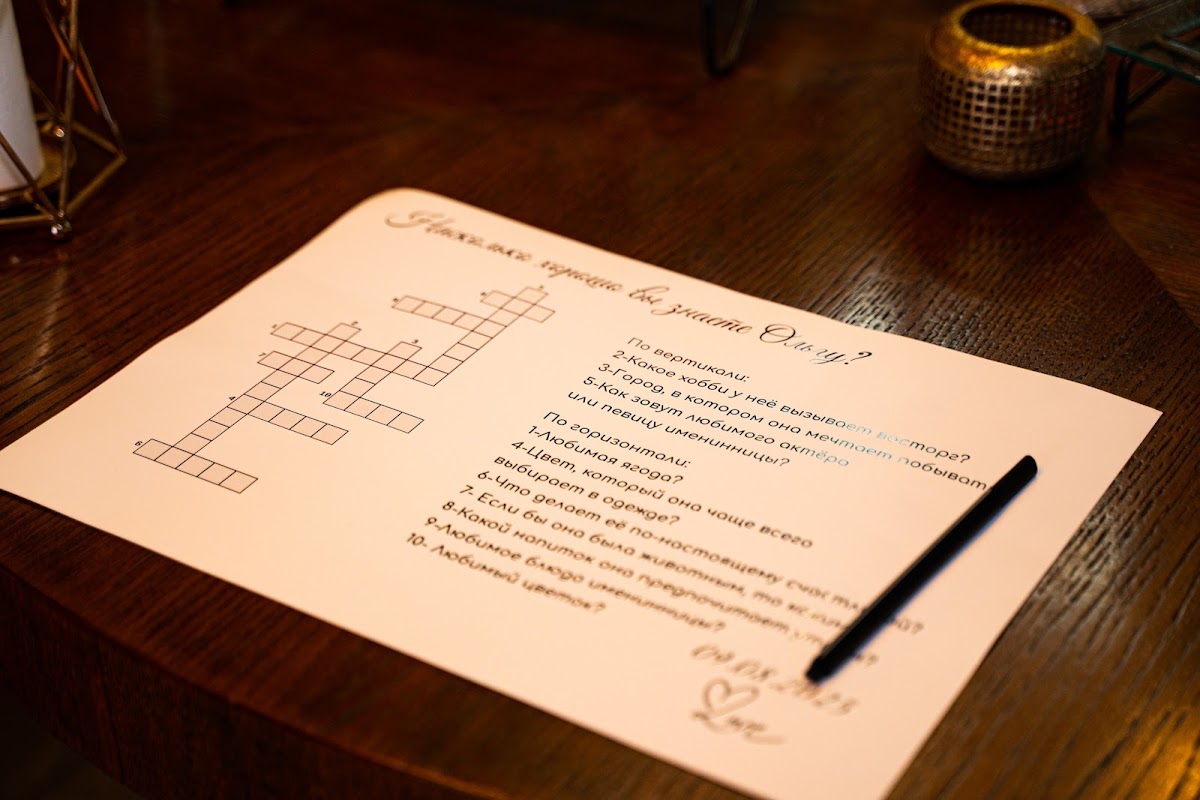 Насколько хорошо вы знаете Ольгу?
По вертикали:
2-Какое хобби у неё вызывает восторг?
3-Город, в котором она мечтает побывать
5-Как зовут любимого актёра
или певицу именинницы?
По горизонтали:
1-Любимая ягода?
4-Цвет, который она чаще всего
выбирает в одежде?
6-Что делает её по-настоящему
7- Если бы она была животным, то
8-Какой напиток она предпочитает
9-Любимое блюдо именинницы?
10- Любимый цветок?
Love